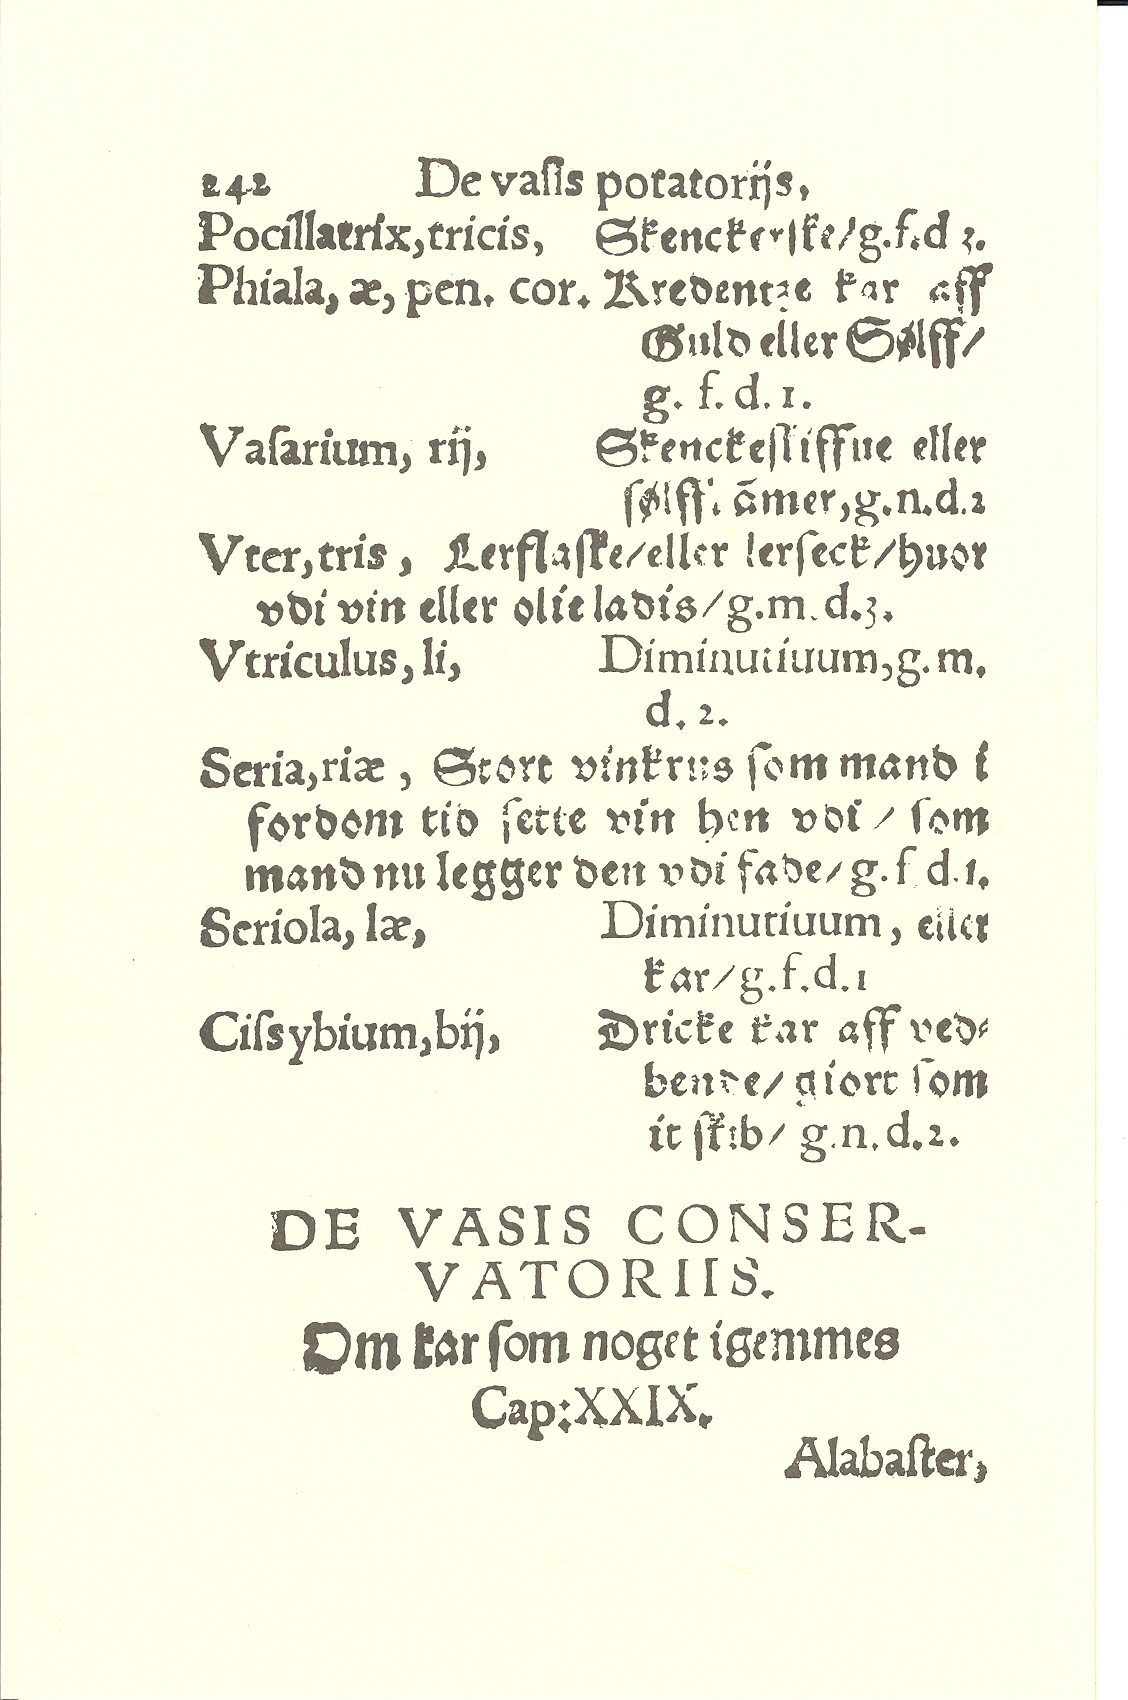 242 De vaſis potatorijs,
Pocillatrix, tricis, Skenckerſke/ g.f.d 3.
Phiala, æ, pen. cor. Kredentze kar aff
Guld eller Sølff/
g. f. d. 1.
Vaſarium, rij, Skenckeſtiffue eller
ſølff. āmer, g.n.d.2
Vter, tris, Lerflaſke/ eller lerſeck/ huor
vdi vin eller olie ladis/ g.m.d.3.
Vtriculus, li, Diminutiuum, g.m.
d. 2.
Seria, riæ, Stort vinkrus ſom mand i
fordom tid ſette vin hen vdi/ ſom
mand nu legger den vdi fade/ g.f d.1.
Seriola, læ, Diminutiuum, eller
kar/ g.f.d.1
Ciſsybium, bij, Dricke kar aff ved⸗
bende/ giort ſom
it ſkib/ g.n.d.2.
DE VASIS CONSER-
VATORIIS.
Om kar ſom noget igemmes
Cap: XXIX.
Alabaſter,